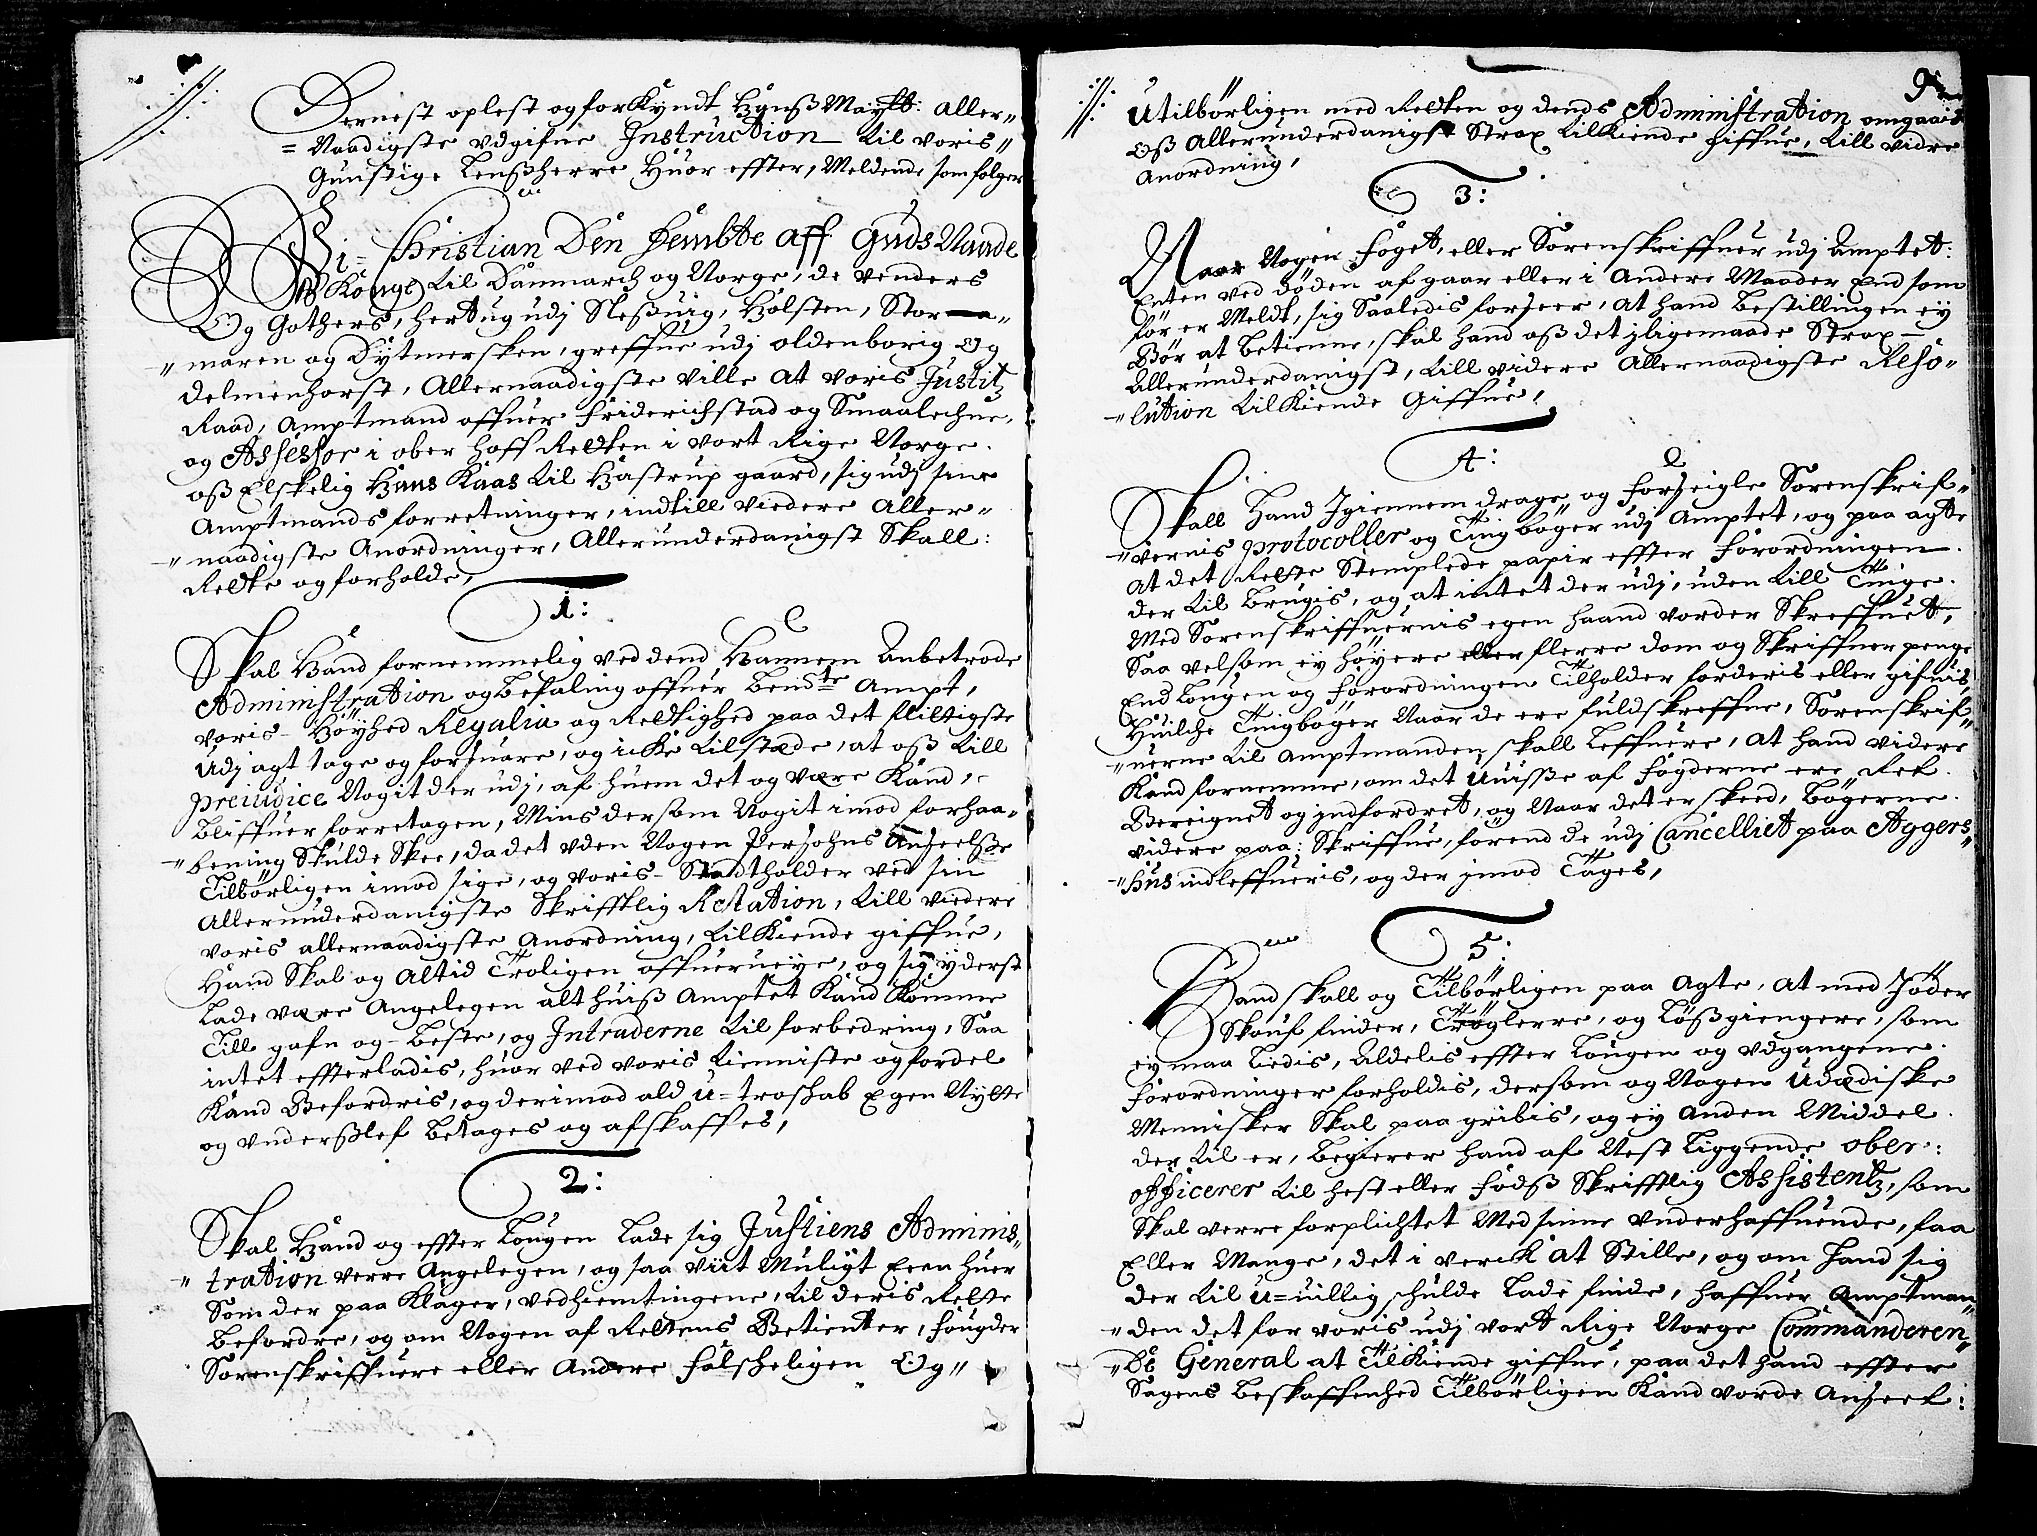 Dernest oplest og forKyndt Hanß Maytt: aller=
=Naadigste vdgifne Instruction til voris
Gunstige Lenßherre Huor effter, Meldende som følger
Vi Christian Den Fembte aff Guds Naade
Konge til Danmarch og Norge, de Venders
Og Gothers, Hertug udj Sleßuig, Holsten, Stor-
maren og Dytmersken, greffue udj oldenborig og
delmenhorst, Allernaadigste ville at voris Justitz
Raad, Amptmand offuer Friderichstad og Smaalehne,
og Assessor i ober hoff Retten i vort Rige Norge
oß Elskelig Hans Kaas til Hastrup gaard, sig udj sine
Amptmands forretninger, indtill viedere Aller=
=naadigste Anordninger, Allerunderdanigst Skall
Rette og forholde,
1:
Skal Hand fornemmelig ved dend Hannem Anbetrode
Administration og befaling offuer bemte Ampt,
voris Høyhed Regalia og Rettighed paa det flittigste
Udj agt tage og forsuare, og icke tilstæde, at oß till
preiudice Nogit der udj, af huem det og være Kand,
bliffuer forretagen, Mens dersom Nogit imod forhaa=
=bening Skulde Skee, da det uden Nogen Persohns Anseelße
Tilbørligen imod sige, og voris Stadtholder ved sin
Allerunderdanigste Skrifftlig Relation, till viedere
voris allernaadigste Anordning, tilKiende giffue,
Hand Skal og altid Troligen offuerueye, og sig yderst
lade være Angelegen alt huiß Amptet Kand Komme
Till gafn og beste, og Intraderne til forbedring, Saa
intet effterladis, huor ved voris tienniste og fordel
Kand Befordris, og derimod ald u=troskab Egen Nytte
og underßlef betages og afskaffes,
2:
Skal Hand og effter Lougen lade sig Justiens Adminis=
tration verre Angelegen, og saa viit Muligt Een huer
Som der paa Klager, ved hiemtingene, til deris Rette
befordre, og om Nogen af Rettens Betienter, fougder
Sorenskriffuere eller Andere falskeligen Og
9
Utilbörligen med Retten og dends Administration omgaaes
oß Allerunderdanigst Strax tilKiende giffue, till vidre
Anordning,
3:
Naar Nogen Foget, eller Sorenskriffuer udj Amptet
Enten ved døden afgaar eller i Andere Maader End som
før er Meldt, sig Saaledis forseer, at hand bestillingen ey
Bør at betienne, skal hand oß det jligemaade Strax
Allerunderdanigst, till videre Allernaadigste Reso=
=lution tilKiende Giffue,
4:
Skall Hand Igiennem drage og forseigle Sorenskrif=
=vernis protocoller og Tingbøger udj Amptet, og paa agte
at det Rette Stemplede papir effter forordningen
der til bruges, og at intet der udj, uden till Tinge
Med Sorenskriffuernis egen haand vorder Skreffuet,
Saa velsom ey høyere eller flerre dom og Skriffuer penge
End Lougen og forordningen Tilholder forderis eller gifuis,
Huilche Tingbøger Naar de ere fuldskreffne, Sorenskrif=
=uerne til Amptmanden skall leffuere, at hand videre
Kand fornemme, om det Uuisße af Fogderne ere Ret
Bereignet og jndfordret, og Naar det er skeed, bøgerne
videre paa Skriffue, førend de udj Cancelliet paa Aggers=
=hus indleffueris, og der jmod Tages,
5:
Hand skall og Tilbørligen paa Agte, at med Jøder
Skouffinder, Trøglerre, og Løßgiengere, som
ey maa liedis, Aldelis effter Lougen og udgangene
forordninger forholdis, dersom og Nogen Udædiske
Mennisker Skal paagribis, og ey anden Middel
der til er, begierer hand af Nest liggende ober
officerer til hest eller fodß Skrifftlig Assistentz, som
Skal verre forplichtet Med sinne underhaffuende, faa
Eller Mange, det i verck at Stille, og om hand sig
der til u=uillig schulde lade finde, haffuer Amptman=
=den det for voris udj vort Rige Norge Commanderen=
=de General at Tilkiende giffue, paa det hand effter
Sagens beskaffenhed Tilbørligen Kand vorde Anseet: